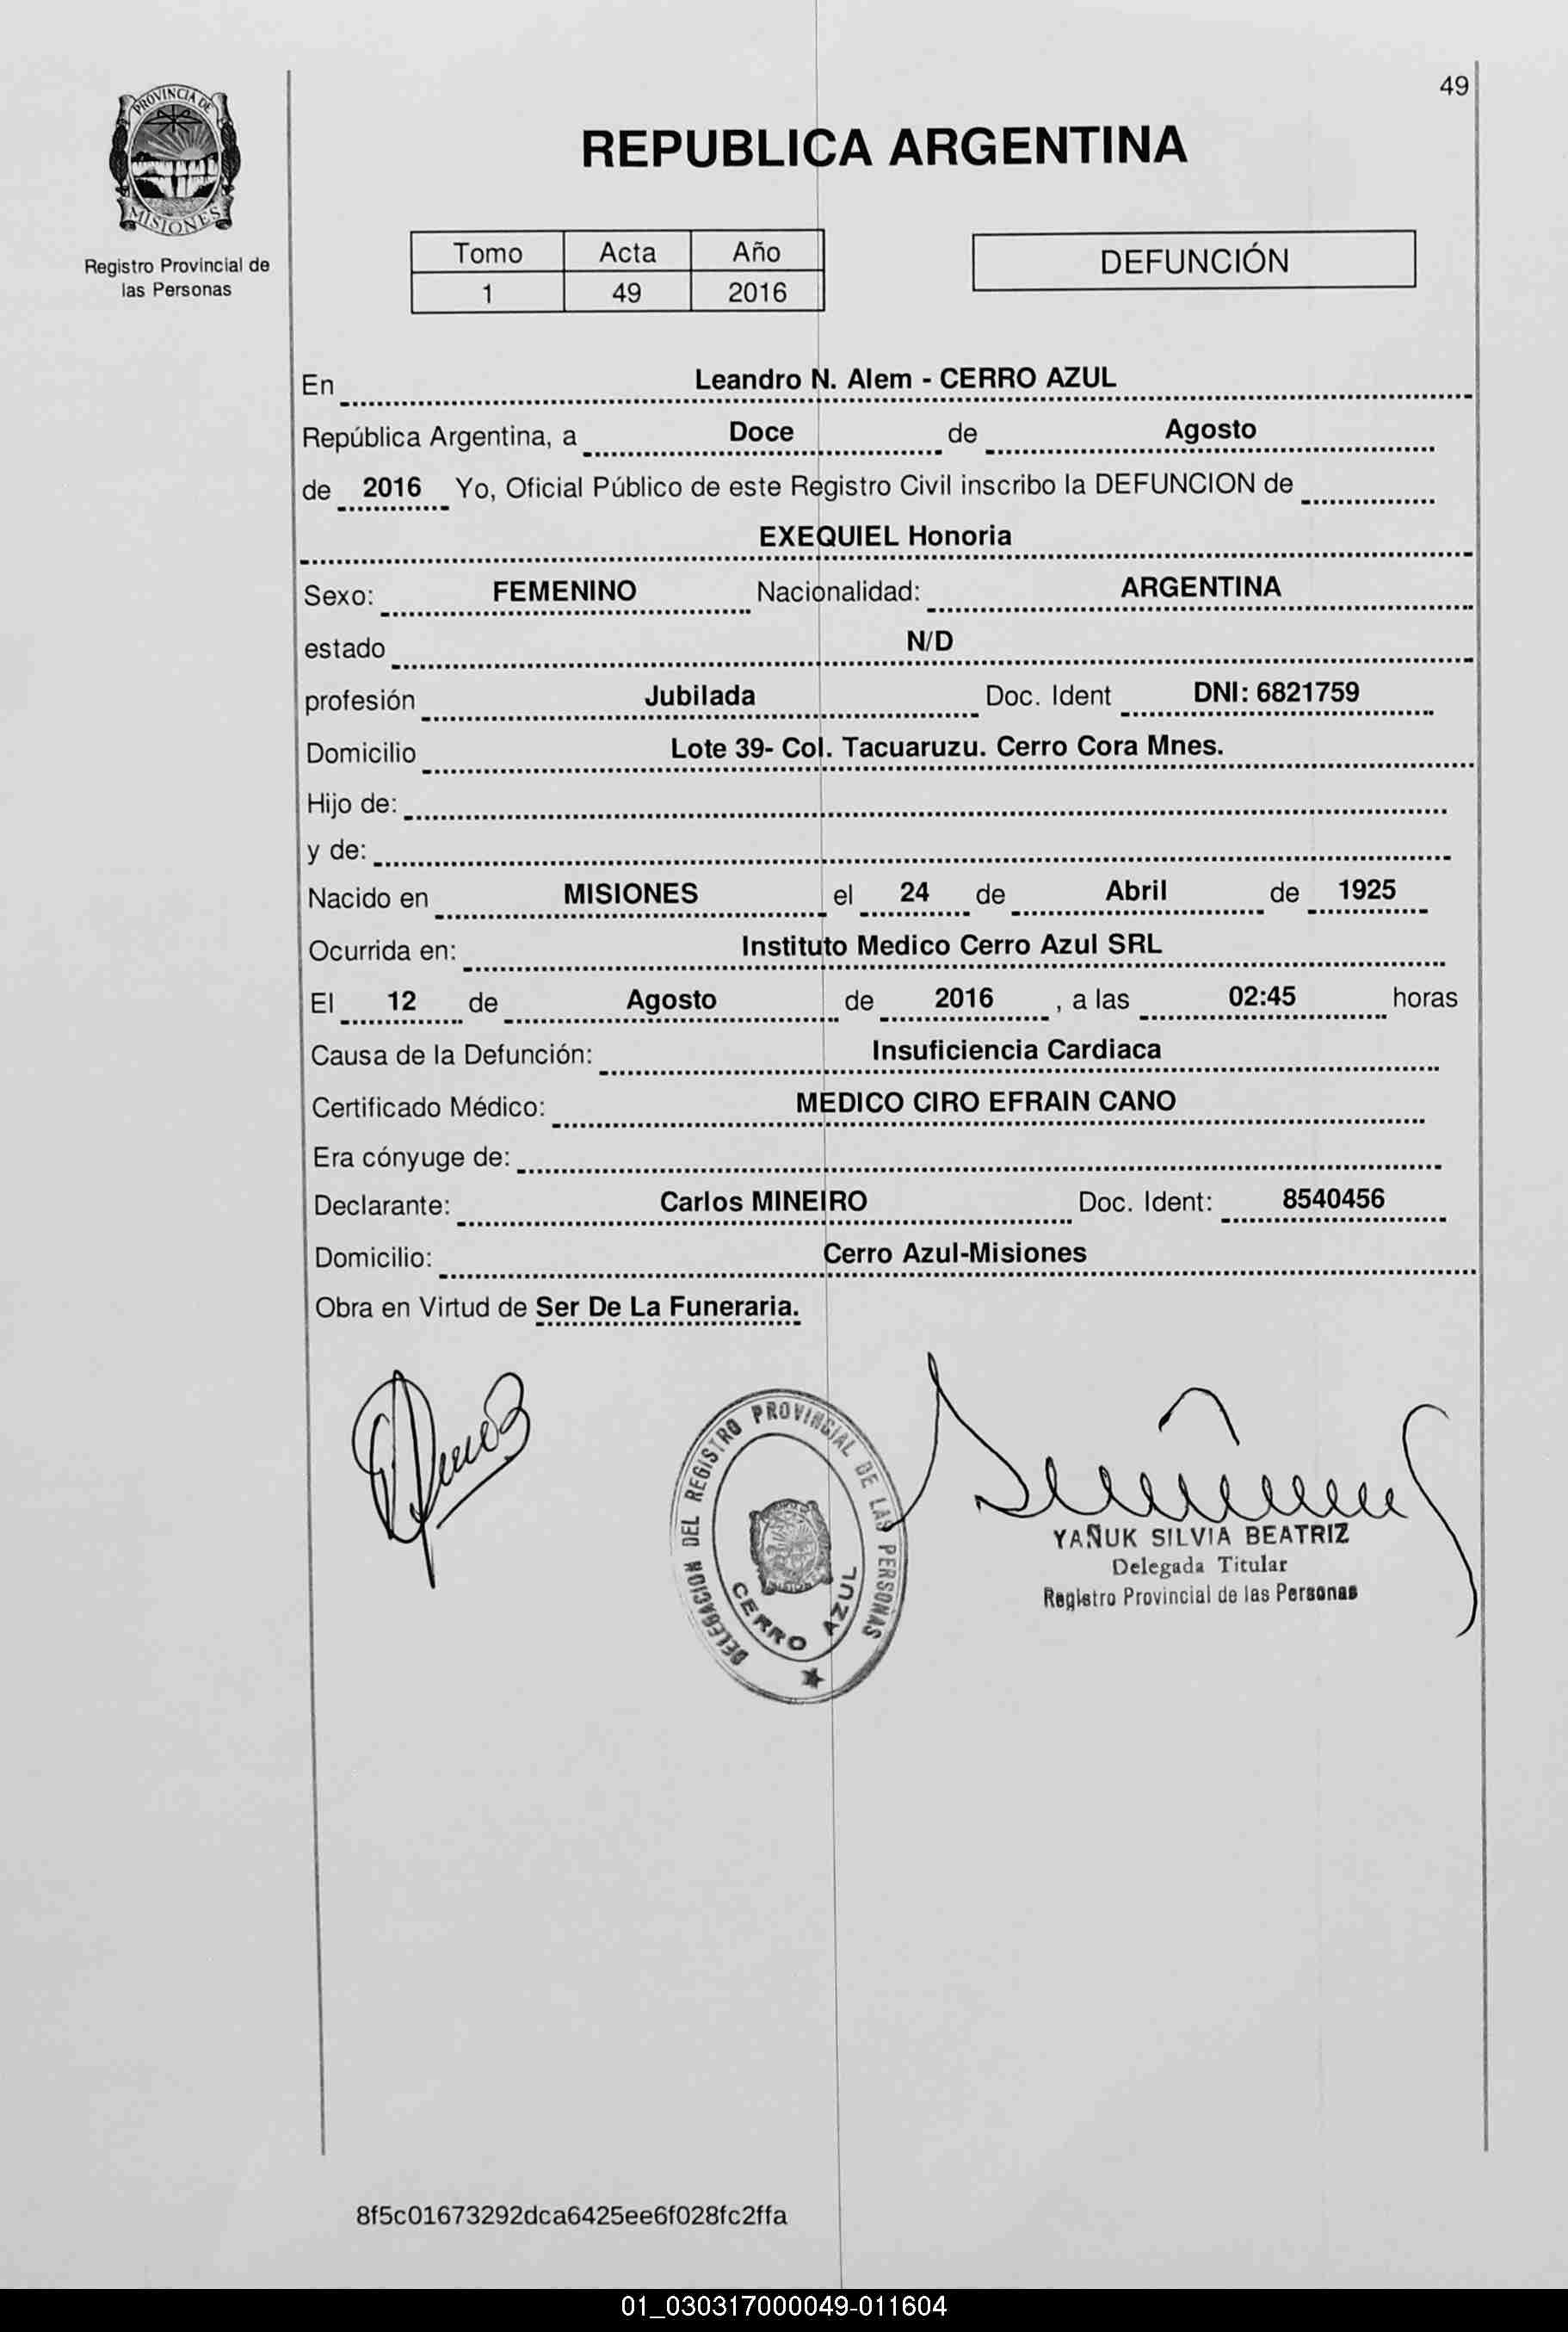 49
PROVINCIA DE
MISIONES
Registro Provincial de
las Personas
REPUBLICA ARGENTINA
Tomo Acta Año
1 49 2016
DEFUNCIÓN
En Leandro N. Alem - CERRO AZUL
República Argentina, a Doce de Agosto
de 2016 Yo, Oficial Público de este Registro Civil inscribo la DEFUNCION de
EXEQUIEL Honoria
Sexo: FEMENINO Nacionalidad: ARGENTINA
estado N/D
profesión Jubilada Doc. Ident DNI: 6821759
Domicilio Lote 39- Col. Tacuaruzu. Cerro Cora Mnes.
Hijo de:
y de:
Nacido en MISIONES el 24 de Abril de 1925
Ocurrida en: Instituto Medico Cerro Azul SRL
El 12 de Agosto de 2016 , a las 02:45 horas
Causa de la Defunción: Insuficiencia Cardiaca
Certificado Médico: MEDICO CIRO EFRAIN CANO
Era cónyuge de:
Declarante: Carlos MINEIRO Doc. Ident: 8540456
Domicilio: Cerro Azul-Misiones
Obra en Virtud de Ser De La Funeraria.
DELEGACION DEL REGISTRO PROVINCIAL DE LAS PERSONAS
CERRO AZUL
YAÑUK SILVIA BEATRIZ
Delegada Titular
Registro Provincial de las Personas
8f5c01673292dca6425ee6f028fc2ffa
01_030317000049-011604